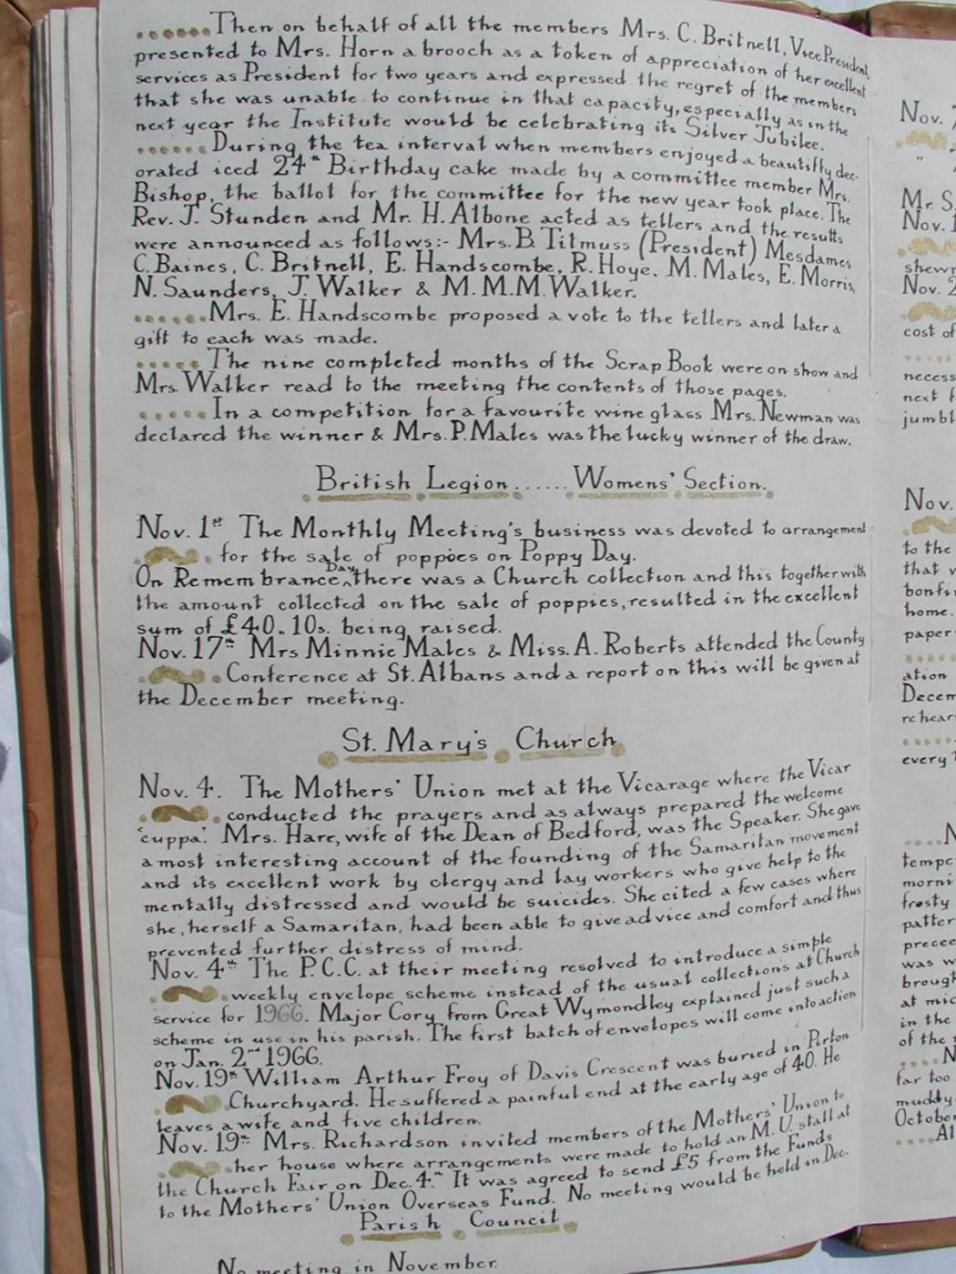 ......Then on behalf of all the members Mrs. C. Britnell, Vice President,
presented to Mrs. Horn a brooch as a token of appreciation of her excellent
services as President for two years and expressed the regret of the members
that she was unable to continue in that capacity, especially as in the
next year the Institute would be celebrating its Silver Jubilee.
......During the tea interval when members enjoyed a beautiflly dec-
orated iced 24th Birthday cake made by a committee member Mrs.
Bishop, the ballot for the committee for the new year took place. The
Rev. J. Stunden and Mr. H. Albone acted as tellers and the results
were announced as follows:- Mrs. B. Titmuss (President) Mesdames
C. Baines, C. Britnell, E. Handscombe, R. Hoye, M. Males, E. Morris,
N. Saunders, J. Walker & M.M.M. Walker.
......Mrs. E. Handscombe proposed a vote to the tellers and later a
gift to each was made.
.....The nine completed months of the Scrap Book were on show and
Mrs Walker read to the meeting the contents of those pages.
.....In a competition for a favourite wine glass Mrs. Newman was
declared the winner & Mrs. P. Males was the lucky winner of the draw.
British Legion......Womens' Section.
Nov. 1st The Monthly Meeting's business was devoted to arrangement
for the sale of poppies on Poppy Day.
On Remembrance Day there was a Church collection and this together with
the amount collected on the sale of poppies, resulted in the excellent
sum of £40. 10s. being raised.
Nov. 17th Mrs Minnie Males & Miss. A. Roberts attended the County
Conference at St. Albans and a report on this will be given at
the December meeting.
St. Mary's Church
Nov. 4. The Mothers' Union met at the Vicarage where the Vicar
conducted the prayers and as always prepared the welcome
'cuppa'. Mrs. Hare, wife of the Dean of Bedford, was the Speaker. She gave
a most interesting account of the founding of the Samaritan movement
and its excellent work by clergy and lay workers who give help to the
mentally distressed and would be suicides. She cited a few cases where
she, herself a Samaritan, had been able to give advice and comfort and thus
prevented further distress of mind.
Nov. 4th The P.C.C. at their meeting resolved to introduce a simple
weekly envelope scheme instead of the usual collections at Church
service for 1966. Major Cory from Great Wymondley explained just such a
scheme in use in his parish. The first batch of envelopes will come into action
on Jan. 2nd 1966.
Nov. 19th William Arthur Froy of Davis Crescent was buried in Pirton
Churchyard. He suffered a painful end at the early age of 40. He
leaves a wife and five children.
Nov. 19th Mrs. Richardson invited members of the Mothers' Union to
her house where arrangements were made to hold an M.U. stall at
the Church Fair on Dec. 4th It was agreed to send £5 from the Funds
to the Mothers' Union Overseas Fund. No meeting would be held in Dec.
Parish Council
No meeting in November.
Nov.
Mr. S.
Nov. 1
shewn
Nov. 2
cost of
necess
next f
jumbl
Nov.
to the
that w
bonfi
home.
paper
ation
Decem
rehear
every
tempe
morni
frosty
patter
precee
was w
brough
at mid
in the
of the
far too
muddy
October
....Al